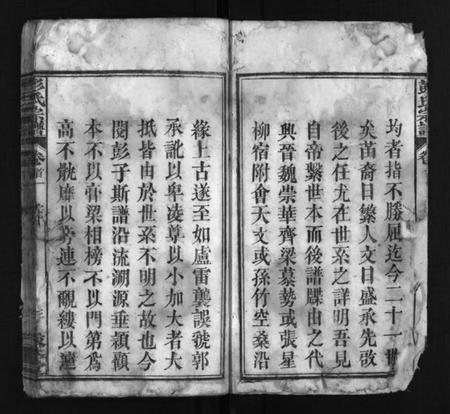 均者指不勝屈迄今二十一世
矣苗裔日繁人文日盛承先啟
後之任尤在世系之詳明吾見
自帝繫世本而後譜牒由之代
興晉魏崇華齊梁慕勢或張星
柳宿附會天文或孫竹空桑沿
緣上古遂至如盧雷龔誤虢郭
承訛以卑凌尊以小加大者大
抵皆由於世系不明之故也今
閱彭子斯譜沿流溯源垂顒顒
本不以膏粱相榜不以門第為
高不骩靡以旁連不覼縷以遠
彭氏宗譜
卷首
彭氏宗譜
卷